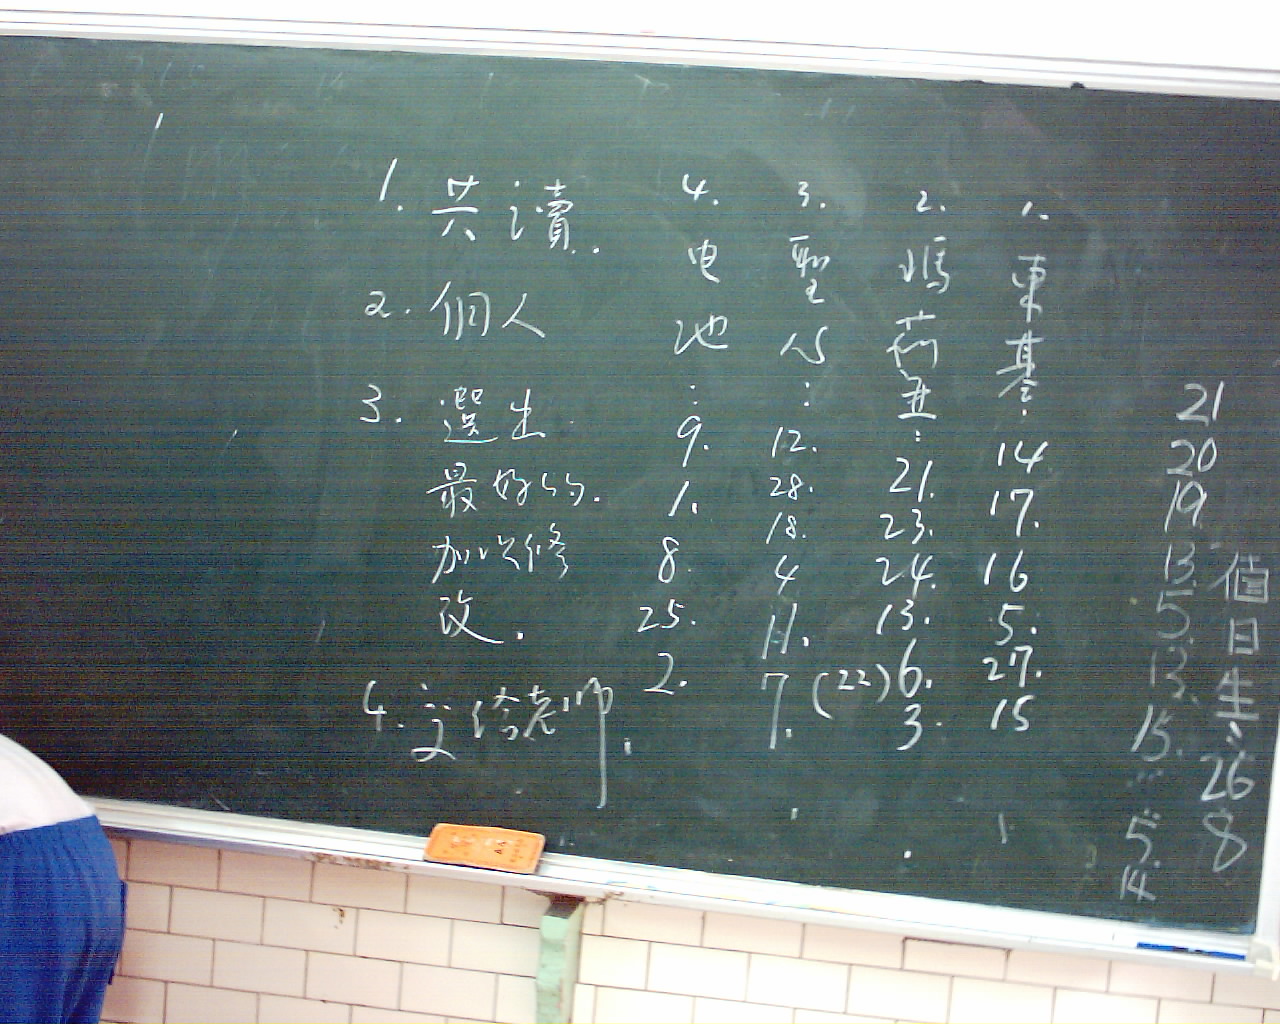 1. 共讀.
2. 個人
3. 選出
最好的.
加以修
改.
4. 交給老師.
4. 电池: 9. 1. 8. 25. 2.
3. 聖心: 12. 28. 18. 4 11. 7.
2. 瑪莉亚: 21. 23. 24. 13. (22) 6. 3.
1. 東基: 14 17. 16 5. 27. 15
21 20 19. 13. 5. 13. 15. " 5. 14
值日生: 26 8